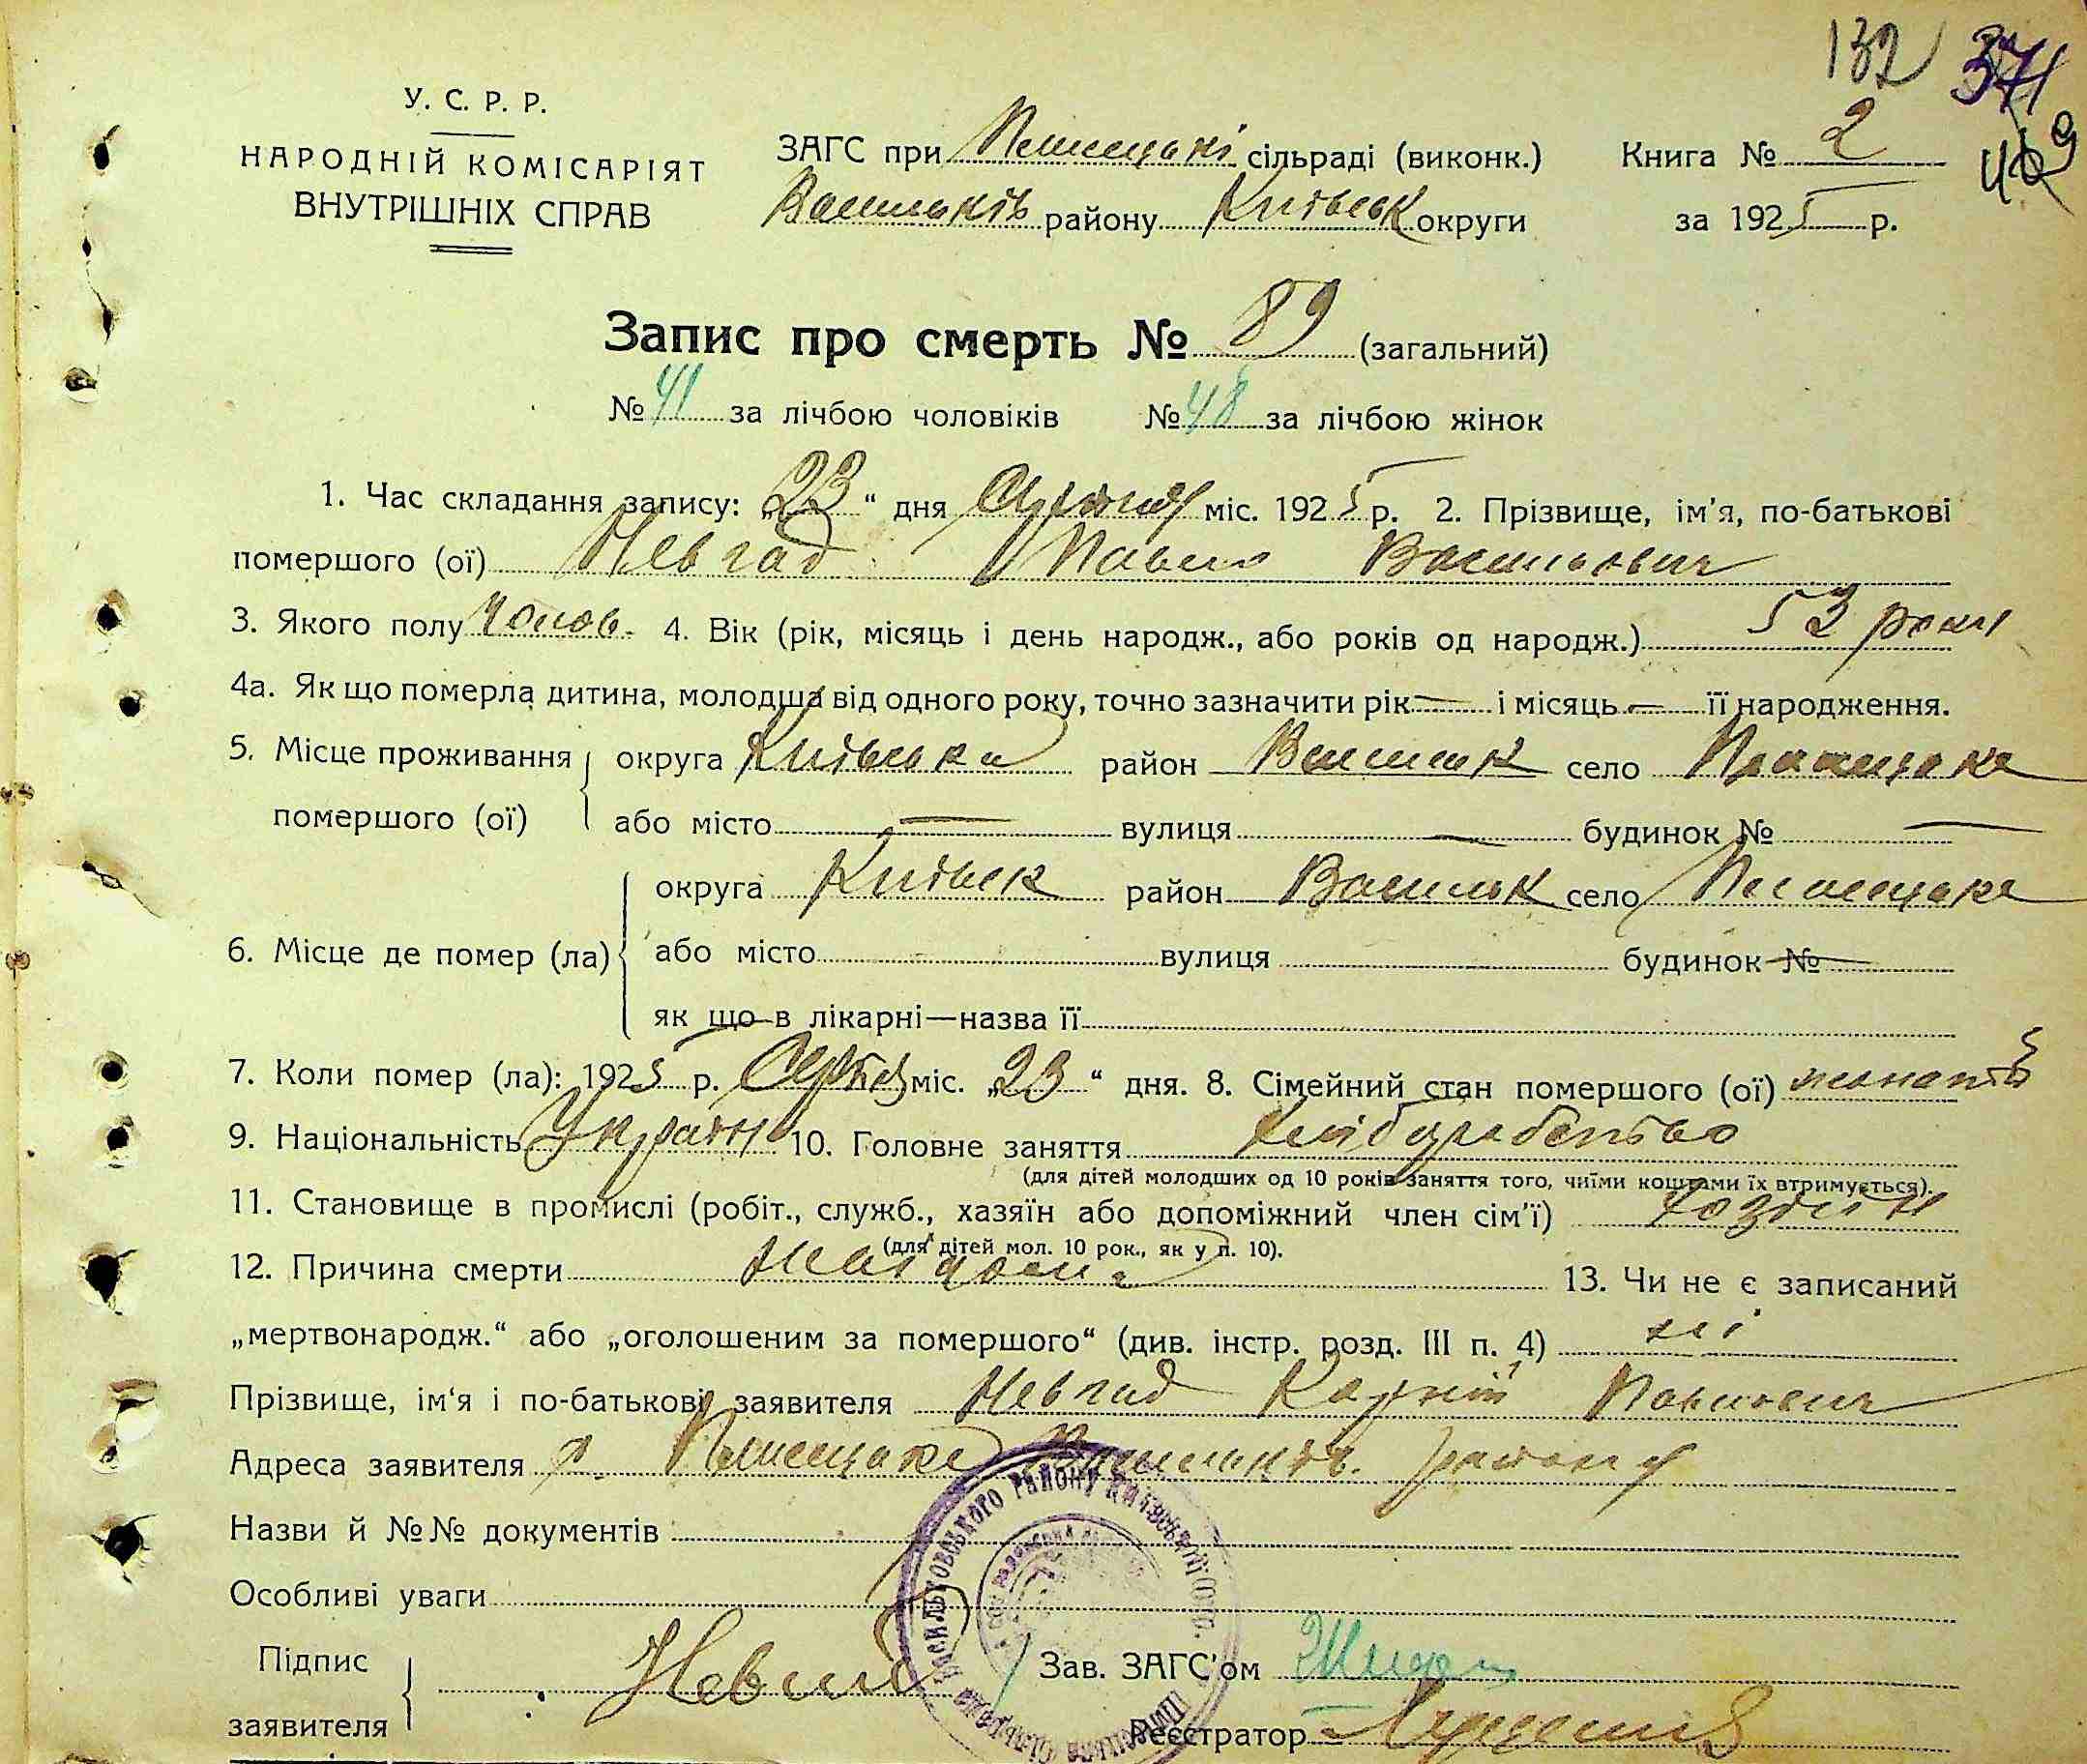 132 371
У. С. Р. Р.
НАРОДНІЙ КОМІСАРІЯТ
ВНУТРІШНІХ СПРАВ
ЗАГС при сільраді (виконк.)
Васильків району Київськ округи
Книга № 2
за 1925 р.
Запис про смерть № 89 (загальний)
№ 41 за лічбою чоловіків № 48 за лічбою жінок
1. Час складання запису: „23“ дня Серпня міс. 1925 р. 2. Прізвище, ім'я, по-батькові
помершого (ої) Невгад Павло Васильович
3. Якого полу чолов. 4. Вік (рік, місяць і день народж., або років од народж.) 53 роки
4а. Як що померла дитина, молодша від одного року, точно зазначити рік — і місяць — її народження.
5. Місце проживання помершого (ої) округа Київська район Васильк село
або місто — вулиця — будинок № —
6. Місце де помер (ла) округа Київськ район Васильк село
або місто вулиця будинок №
як що в лікарні—назва її
7. Коли помер (ла): 1925 р. Серпня міс. „23“ дня. 8. Сімейний стан помершого (ої) жонатий
9. Національність Україн 10. Головне заняття хліборобство
(для дітей молодших од 10 років заняття того, чиїми коштами їх втримується).
11. Становище в промислі (робіт., служб., хазяїн або допоміжний член сім'ї) хозяїн
(для дітей мол. 10 рок., як у п. 10).
12. Причина смерти 13. Чи не є записаний
„мертвонародж.“ або „оголошеним за помершого“ (див. інстр. розд. III п. 4) ні
Прізвище, ім'я і по-батькові заявителя Невгад Корній Павлович
Адреса заявителя с. Васильків. району
Назви й №№ документів
Особливі уваги
Підпис заявителя Невгад
Зав. ЗАГС'ом
Реєстратор